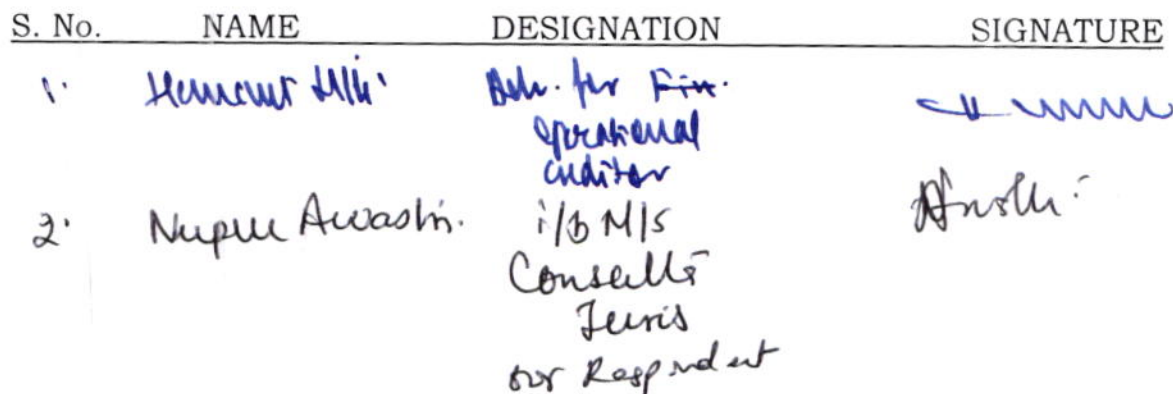 S. No. NAME DESIGNATION SIGNATURE
1. Hemant for Fin.
operational
creditor
2. Nupur Awasthi. i/b M/s
Juris
for Respondent